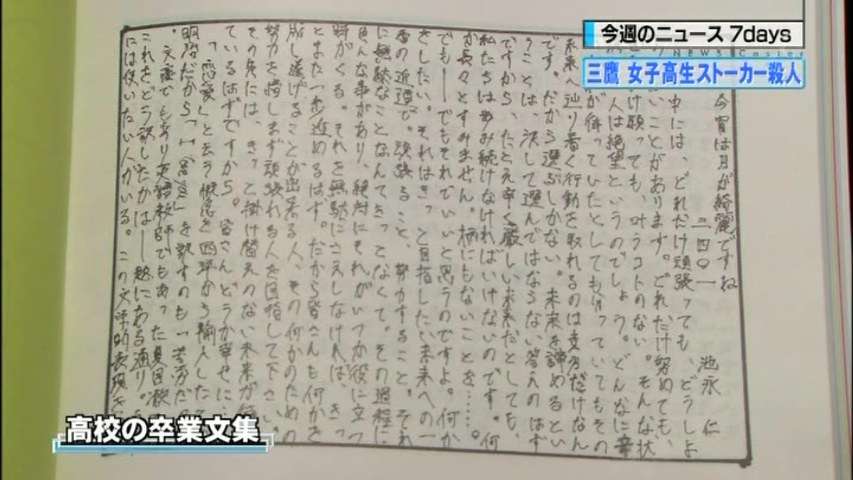 今週のニュース 7days
三鷹 女子高生ストーカー殺人
今宵は月が綺麗ですね
三四〇一 池永 仁
中には、どれだけ頑張っても、どうしよ
いことがあります。どれだけ努めても、
け願っても、叶うコトのない、そんな状
人は絶望というのでしょう。どんなに辛
が待っていたとしても
未来へ辿り着く行動を取れるのは貴方だけなん
です。だから選ぶしかない。未来を諦めるとい
うことは、決して選んではならない答えのはず
ですから、たとえ辛く厳しい未来だとしても、
私たちは歩み続けなければいけないのです。何
か長々とすみません。柄にもないことを……。
でも――でもそれでいいと思うのですよ。何か
をしたい。それはきっと目指したい未来への一
番の近道で。頑張ること、努力すること。それ
に無駄なことなんてきっとなくて。その過程に
色んな事があり、絶対にそれがいつか役に立つ
時がくる。それを無駄にさえしなければ、きっ
とまた一歩進めるはず。だから皆さんも何かを
成し遂げることが出来る人、その何かのための
努力を惜しまず頑張れる人を目指して下さい。
その先には、きっと掛け替えのない未来が待っ
ているはずですから。皆さんどうか幸せに
「恋愛」と云う概念を西洋から輸入した
明治だから を訳すのも一苦労だ
文豪でもあり英語教師でもあった夏目漱
これをどう訳したかは―題にある通り。
には使いたい人がいる。この文学的表現を
高校の卒業文集